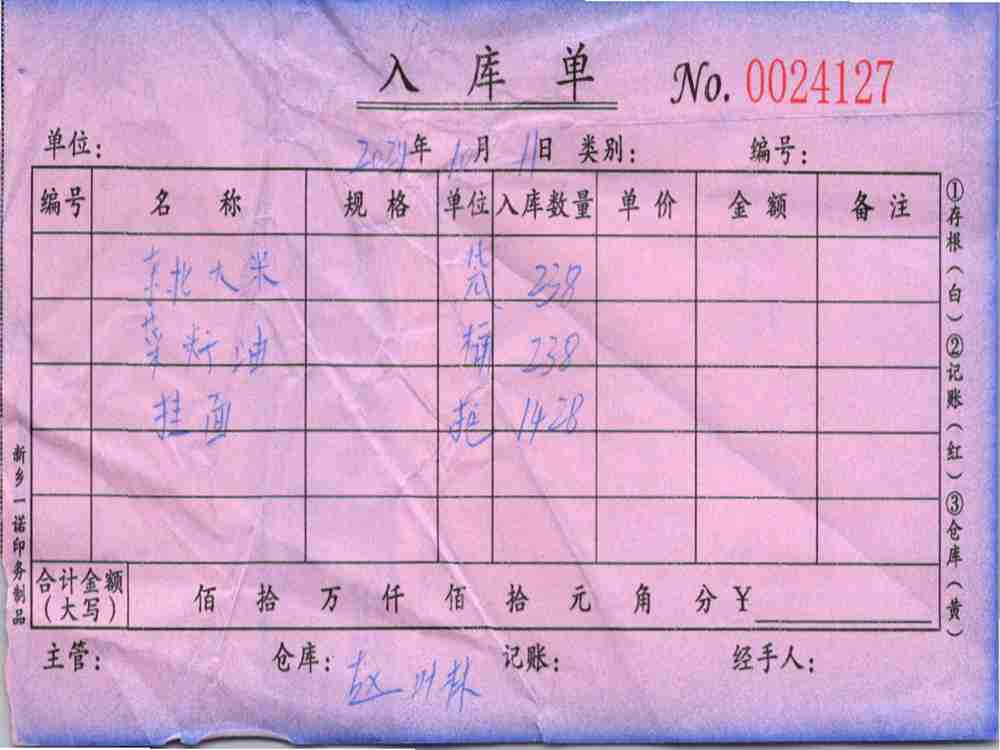 入库单 No. 0024127
单位： 2024年 10月 11日 类别： 编号：
编号 名称 规格 单位 入库数量 单价 金额 备注
东北大米 袋 238
菜籽油 桶 238
挂面 把 1428
合计金额（大写） 佰 拾 万 仟 佰 拾 元 角 分 ¥
主管： 仓库：赵 林 记账： 经手人：
①存根（白）②记账（红）③仓库（黄）
新乡一诺印务制品